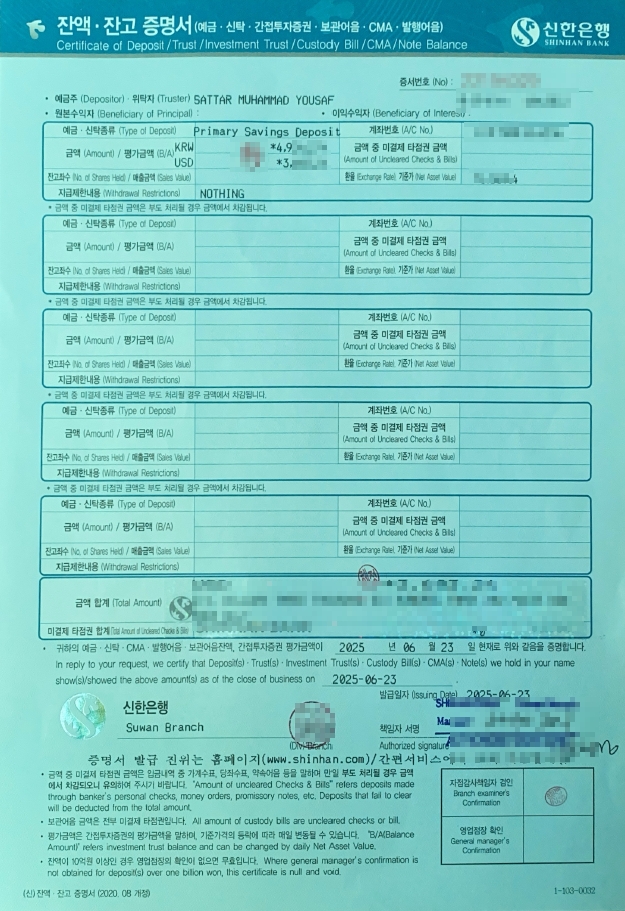 잔액·잔고 증명서(예금·신탁·간접투자증권·보관어음·CMA·발행어음)
Certificate of Deposit/Trust/Investment Trust/Custody Bill/CMA/Note Balance
신한은행
SHINHAN BANK
증서번호 (No) :
• 예금주 (Depositor)·위탁자 (Truster) SATTAR MUHAMMAD YOUSAF
• 원본수익자 (Beneficiary of Principal) : • 이익수익자 (Beneficiary of Interest) :
예금·신탁종류 (Type of Deposit) Primary Savings Deposit 계좌번호 (A/C No.)
금액 (Amount) / 평가금액 (B/A) KRW *4,9 금액 중 미결제 타점권 금액
USD *3, (Amount of Uncleared Checks & Bills)
잔고좌수 (No. of Shares Held) / 매출금액 (Sales Value) 환율 (Exchange Rate), 기준가 (Net Asset Value)
지급제한내용 (Withdrawal Restrictions) NOTHING
* 금액 중 미결제 타점권 금액은 부도 처리될 경우 금액에서 차감됩니다.
예금·신탁종류 (Type of Deposit) 계좌번호 (A/C No.)
금액 (Amount) / 평가금액 (B/A) 금액 중 미결제 타점권 금액
(Amount of Uncleared Checks & Bills)
잔고좌수 (No. of Shares Held) / 매출금액 (Sales Value) 환율 (Exchange Rate), 기준가 (Net Asset Value)
지급제한내용 (Withdrawal Restrictions)
* 금액 중 미결제 타점권 금액은 부도 처리될 경우 금액에서 차감됩니다.
예금·신탁종류 (Type of Deposit) 계좌번호 (A/C No.)
금액 (Amount) / 평가금액 (B/A) 금액 중 미결제 타점권 금액
(Amount of Uncleared Checks & Bills)
잔고좌수 (No. of Shares Held) / 매출금액 (Sales Value) 환율 (Exchange Rate), 기준가 (Net Asset Value)
지급제한내용 (Withdrawal Restrictions)
* 금액 중 미결제 타점권 금액은 부도 처리될 경우 금액에서 차감됩니다.
예금·신탁종류 (Type of Deposit) 계좌번호 (A/C No.)
금액 (Amount) / 평가금액 (B/A) 금액 중 미결제 타점권 금액
(Amount of Uncleared Checks & Bills)
잔고좌수 (No. of Shares Held) / 매출금액 (Sales Value) 환율 (Exchange Rate), 기준가 (Net Asset Value)
지급제한내용 (Withdrawal Restrictions)
* 금액 중 미결제 타점권 금액은 부도 처리될 경우 금액에서 차감됩니다.
예금·신탁종류 (Type of Deposit) 계좌번호 (A/C No.)
금액 (Amount) / 평가금액 (B/A) 금액 중 미결제 타점권 금액
(Amount of Uncleared Checks & Bills)
잔고좌수 (No. of Shares Held) / 매출금액 (Sales Value) 환율 (Exchange Rate), 기준가 (Net Asset Value)
지급제한내용 (Withdrawal Restrictions)
금액 합계 (Total Amount)
미결제 타점권 합계 (Total Amount of Uncleared Checks & Bills)
• 귀하의 예금·신탁·CMA·발행어음·보관어음잔액, 간접투자증권 평가금액이 2025 년 06 월 23 일 현재로 위와 같음을 증명합니다.
In reply to your request, we certify that Deposit(s)·Trust(s)·Investment Trust(s)·Custody Bill(s)·CMA(s)·Note(s) we hold in your name
show(s)/showed the above amount(s) as of the close of business on 2025-06-23
발급일자 (Issuing Date) 2025-06-23
신한은행
Suwan Branch
책임자 서명
(Div) Branch
Authorized signature
증명서 발급 진위는 홈페이지(www.shinhan.com)/간편서비스에
• 금액 중 미결제 타점권 금액은 입금내역 중 가계수표, 당좌수표, 약속어음 등을 말하며 만일 부도 처리될 경우 금액
에서 차감되오니 유의하여 주시기 바랍니다. "Amount of uncleared Checks & Bills" refers deposits made
through banker's personal checks, money orders, promissory notes, etc. Deposits that fail to clear
will be deducted from the total amount.
• 보관어음 금액은 전부 미결제 타점권입니다. All amount of custody bills are uncleared checks or bill.
• 평가금액은 간접투자증권의 평가금액을 말하며, 기준가격의 등락에 따라 매일 변동될 수 있습니다. "B/A(Balance
Amount)" refers investment trust balance and can be changed by daily Net Asset Value.
• 잔액이 10억원 이상인 경우 영업점장의 확인이 없으면 무효입니다. Where general manager's confirmation is
not obtained for deposit(s) over one billion won, this certificate is null and void.
자점감사책임자 검인
Branch examiner's
Confirmation
영업점장 확인
General manager's
Confirmation
(신) 잔액·잔고 증명서 (2020. 08 개정) 1-103-0032